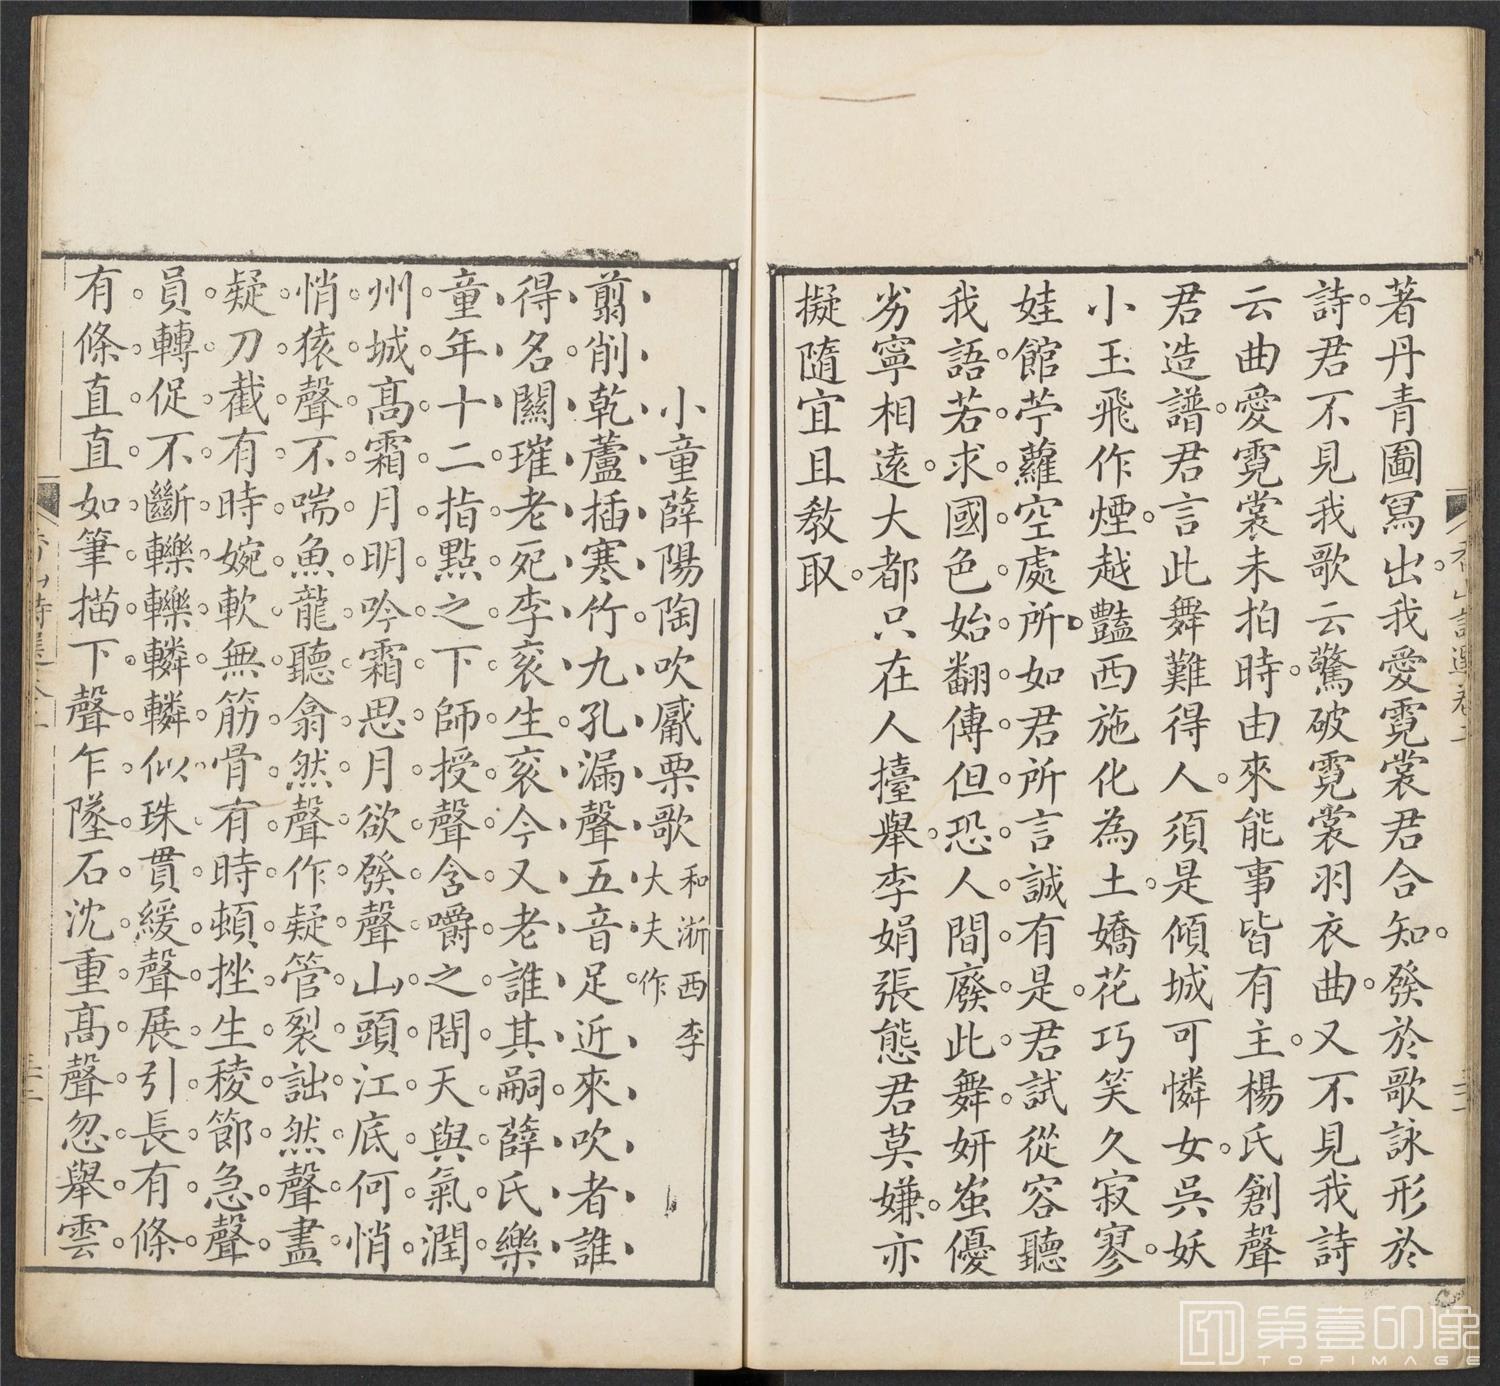 著丹青圖寫出我愛霓裳君合知發於歌詠形於
詩君不見我歌云驚破霓裳羽衣曲又不見我詩
云曲愛霓裳未拍時由來能事皆有主楊氏創聲
君造譜君言此舞難得人須是傾城可憐女吳妖
小玉飛作煙越豔西施化為土嬌花巧笑久寂寥
娃館苧蘿空處所如君所言誠有是君試從容聽
我語若求國色始翻傳但恐人間廢此舞妍蚩優
劣寧相遠大都只在人擡舉李娟張態君莫嫌亦
擬隨宜且教取
小童薛陽陶吹觱栗歌 和浙西李大夫作
翦削乾蘆插寒竹九孔漏聲五音足近來吹者誰
得名關璀老死李袞生袞今又老誰其嗣薛氏樂
童年十二指點之下師授聲含嚼之間天與氣潤
州城高霜月明吟霜思月欲發聲山頭江底何悄
悄猿聲不喘魚龍聽翕然聲作疑管裂詘然聲盡
疑刀截有時婉軟無筋骨有時頓挫生稜節急聲
員轉促不斷轢轢轔轔似珠貫緩聲展引長有條
有條直直如筆描下聲乍墜石沈重高聲忽舉雲
香山詩選卷二
第壹印像
TOPIMAGE